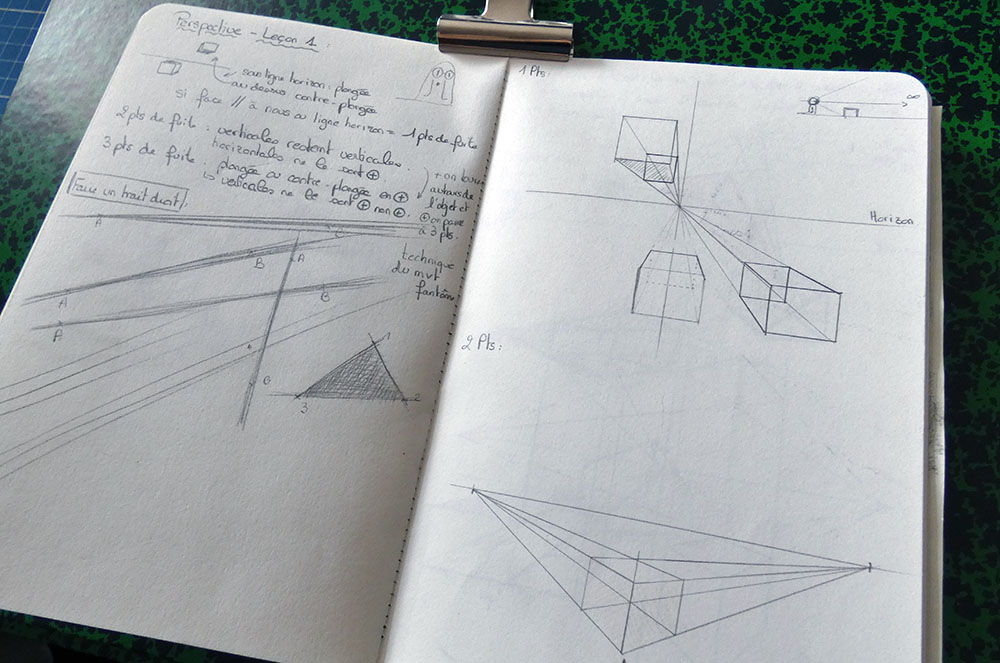 Perspective - Leçon 1 :
sous ligne horizon : plongée
au dessus contre-plongée
si face // à nous ou ligne horizon = 1 pts de fuite
2 pts de fuite : verticales restent verticales.
horizontales ne le sont ⊕
3 pts de fuite : plongée ou contre-plongée en ⊕
↳ verticales ne le sont ⊕ non ⊕.
+ on
autour de
l'objet et
⊕ on passe
à 3 pts.
Faire un trait droit.
A
B
A
A
B
A
technique
du mvt
fantôme
1
2
3
1 Pts :
∞
Horizon
2 Pts :